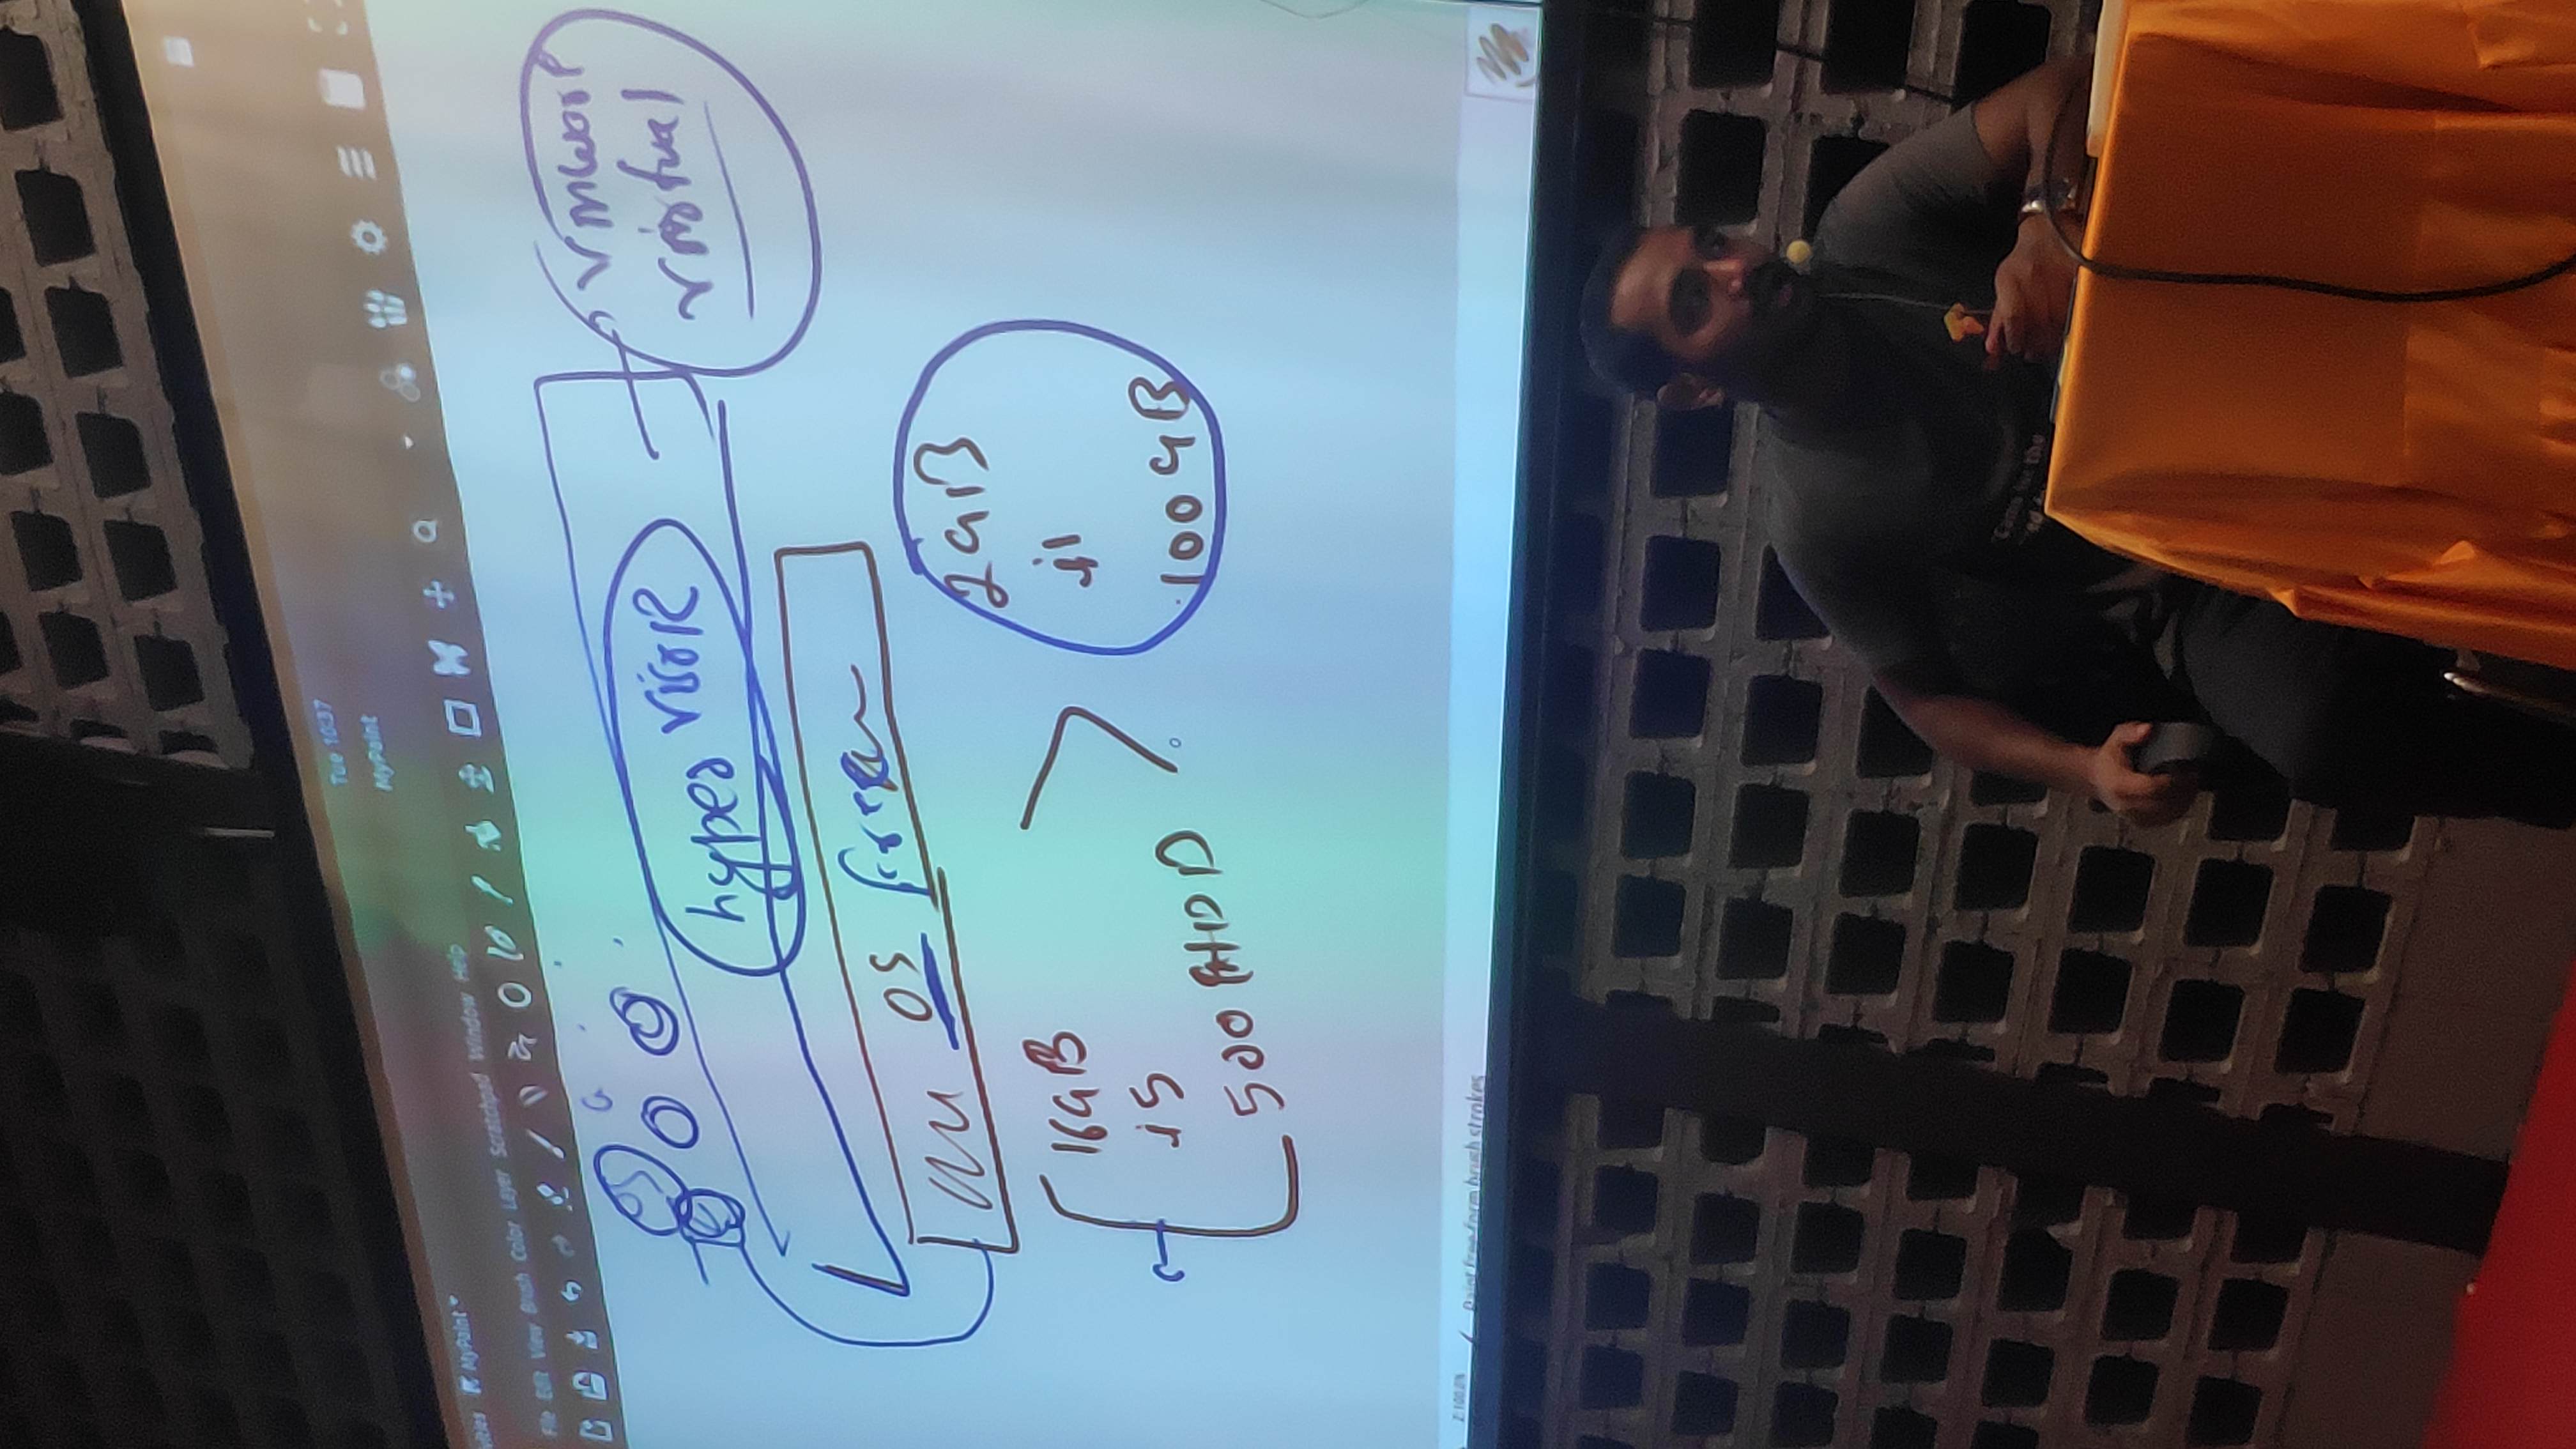 Tue 10:37
MyPaint
vities MyPaint
File Edit View Brush Color Layer Scratchpad Window Help
OS
hypervisoR
Virtual
OS
16GB
i5
500 HDD
2GB
i1
100GB
Z:100.0%
Paint free-form brush strokes
for the